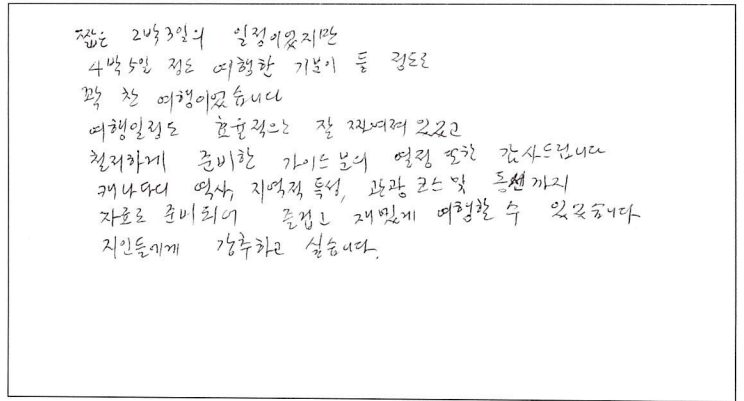 짧은 2박3일의 일정이었지만
4박5일 정도 여행한 기분이 들 정도로
꽉 찬 여행이었습니다
여행일정도 효율적으로 잘 짜여져 있었고
철저하게 준비한 가이드분의 열정 또한 감사드립니다
캐나다의 역사, 지역적 특성, 관광코스 및 동선까지
자료로 준비되어 즐겁고 재밌게 여행할 수 있었습니다
지인들에게 강추하고 싶습니다.